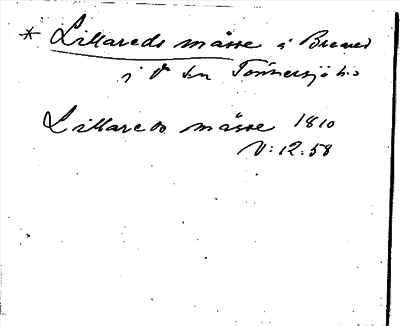 * Lillareds måsse i Breared
i V sn Tönnersjö hd
Lillareds måsse 1810
N:12:58